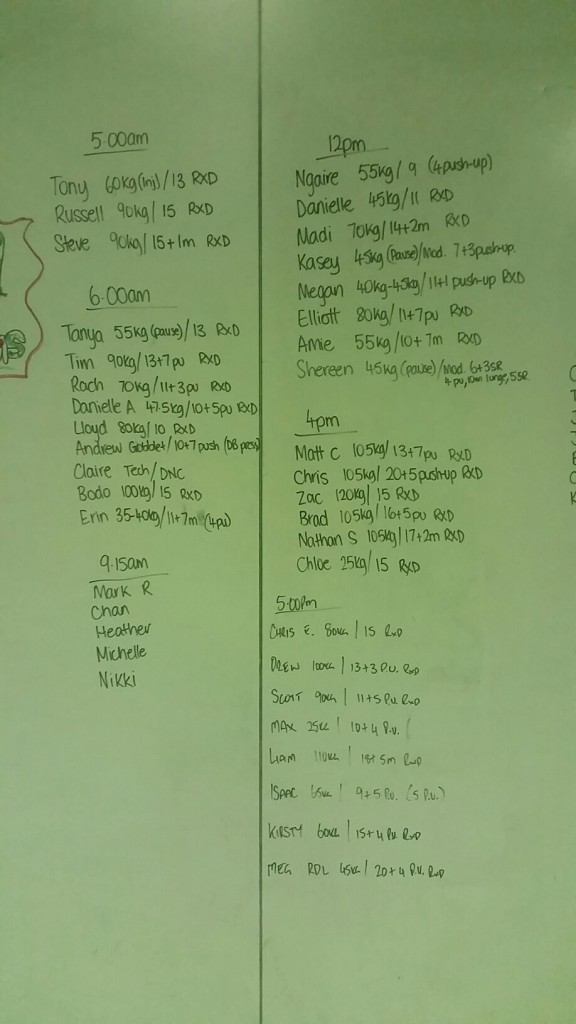 5.00am
Tony 60kg(inj)/13 RXD
Russell 90kg/15 RXD
Steve 90kg/15+1m RXD
6.00am
Tanya 55kg(pause)/13 RXD
Tim 90kg/13+7pu RXD
Roch 70kg/11+3pu RXD
Danielle A 47.5kg/10+5pu RXD
Lloyd 80kg/10 RXD
Andrew /10+7push (DB press)
Claire Tech/DNC
Bodo 100kg/15 RXD
Erin 35-40kg/11+7m (4pu)
9.15am
Mark R
Chan
Heather
Michelle
Nikki
12pm
Ngaire 55kg/9 (4push-up)
Danielle 45kg/11 RXD
Madi 70kg/14+2m RXD
Kasey 45kg(Pause)/Mod. 7+3pushup.
Megan 40kg-45kg/11+1 push-up RXD
Elliott 80kg/11+7pu RXD
Amie 55kg/10+7m RXD
Shereen 45kg(pause)/Mod 6+3SR
4pu, 10m lunge, 5SR
4pm
Matt C 105kg/13+7pu RXD
Chris 105kg/20+5pushup RXD
Zac 120kg/15 RXD
Brad 105kg/16+5pu RXD
Nathan S 105kg/17+2m RXD
Chloe 25kg/15 RXD
5:00pm
CHRIS E. 80KG/15 RXD
DREW 100KG/13+3 P.U. RXD
SCOTT 90KG/11+5 P.U. RXD
MAX 25KG/10+4 P.U.
LIAM 110KG/18+5m RXD
ISAAC 65KG/9+5 P.U. (5 P.U.)
KIRSTY 60KG/15+4 P.U. RXD
MEG RDL 45KG/20+4 P.U. RXD